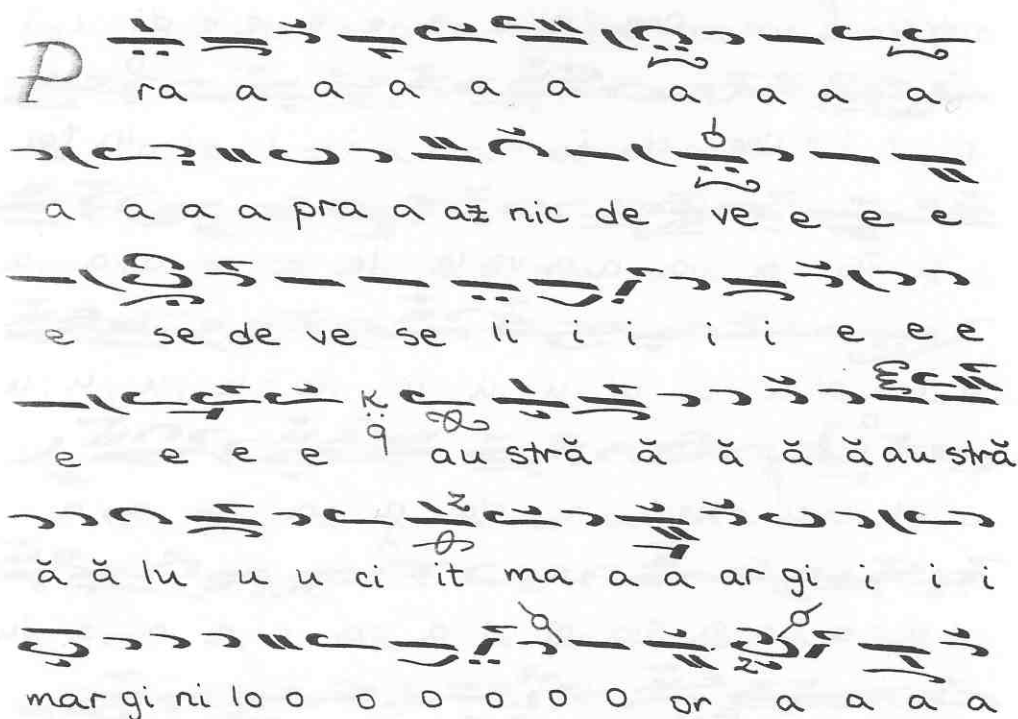 Pra a a a a a a a a a
a a a a pra a az nic de ve e e e
e se de ve se li i i i i e e e
e e e e au stră ă ă ă ă au stră
ă ă lu u u ci it ma a a ar gi i i i
mar gi ni lo o o o o o o or a a a a